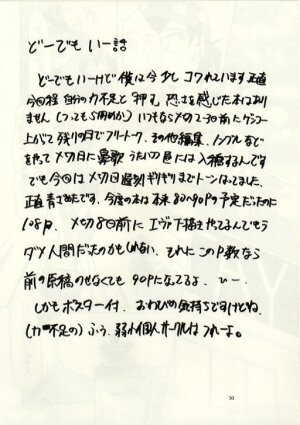 どーでも いー話
どーでもいーけど 僕は今 少し コワれています 正直
今回程 自分の力不足と「押す」恐さを感じた本はあり
ません (つっても5冊めか) いつもならメ切 2~3日前にケシコー
上がって 残りの日で フリートーク、その他編集、ノンブルなど
をやって メ切日に 鼻歌 うたいつつ には 入稿するんです
でも今回は メ切日遅刻ギリギリまで トーンはってました。
正直 青ざめたです、今度の本は 本来 80か90Pの予定だったのに
108P、メ切 8日前に エヴァ下描きやてるんでもう
ダメ人間だったのかもしれない、それに このP数なら
前の原稿のせなくても 90Pになってるよ、ひー、
しかも ポスター付、おわびの気持ちですけどね、
(力不足の) ふう、弱い個人サークルは つれーよ。
50